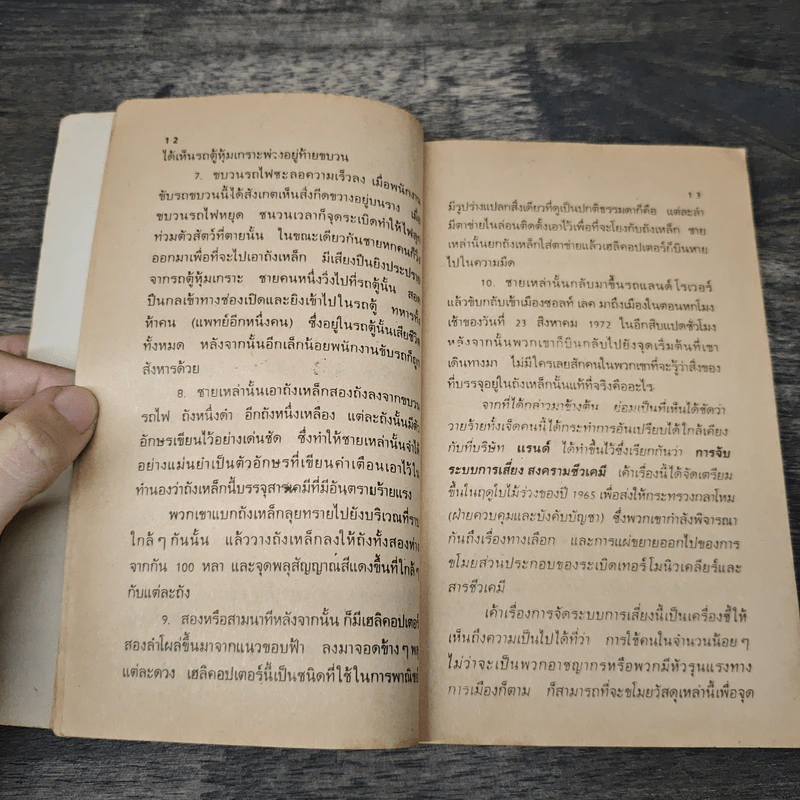 12
ได้เห็นรถตู้หุ้มเกราะพ่วงอยู่ท้ายขบวน
7. ขบวนรถไฟชะลอความเร็วลง เมื่อพนักงาน
ขับรถขบวนนี้ได้สังเกตเห็นสิ่งกีดขวางอยู่บนราง เมื่อ
ขบวนรถไฟหยุด ชนวนเวลาก็จุดระเบิดทำให้ไฟลุก
ท่วมตัวสัตว์ที่ตายนั้น ในขณะเดียวกันชายหกคนก็วิ่ง
ออกมาเพื่อที่จะไปเอาถังเหล็ก มีเสียงปืนยิงประปราย
จากรถตู้หุ้มเกราะ ชายคนหนึ่งวิ่งไปที่รถตู้นั้น สอด
ปืนกลเข้าทางช่องเปิดและยิงเข้าไปในรถตู้ ทหารทั้ง
ห้าคน (แพทย์อีกหนึ่งคน) ซึ่งอยู่ในรถตู้นั้นเสียชีวิต
ทั้งหมด หลังจากนั้นอีกเล็กน้อยพนักงานขับรถก็ถูก
สังหารด้วย
8. ชายเหล่านั้นเอาถังเหล็กสองถังลงจากขบวน
รถไฟ ถังหนึ่งดำ อีกถังหนึ่งเหลือง แต่ละถังนั้นมีตัว
อักษรเขียนไว้อย่างเด่นชัด ซึ่งทำให้ชายเหล่านั้นจำได้
อย่างแม่นยำเป็นตัวอักษรที่เขียนคำเตือนเอาไว้ใน
ทำนองว่าถังเหล็กนี้บรรจุสารเคมีที่มีอันตรายร้ายแรง
พวกเขาแบกถังเหล็กลุยทรายไปยังบริเวณที่ราบ
ใกล้ๆกันนั้น แล้ววางถังเหล็กลงให้ถังทั้งสองห่าง
จากกัน 100 หลา และจุดพลุสัญญาณสีแดงขึ้นที่ใกล้ๆ
กับแต่ละถัง
9. สองหรือสามนาทีหลังจากนั้น ก็มีเฮลิคอปเตอร์
สองลำโผล่ขึ้นมาจากแนวขอบฟ้า ลงมาจอดข้างๆพลุ
แต่ละดวง เฮลิคอปเตอร์นี้เป็นชนิดที่ใช้ในการพาณิชย์
13
มีรูปร่างแปลกสิ่งเดียวที่ดูเป็นปกติธรรมดาก็คือ แต่ละลำ
มีตาข่ายไนล่อนติดตั้งเอาไว้เพื่อที่จะโยงกับถังเหล็ก ชาย
เหล่านั้นยกถังเหล็กใส่ตาข่ายแล้วเฮลิคอปเตอร์ก็บินหาย
ไปในความมืด
10. ชายเหล่านั้นกลับมาขึ้นรถแลนด์ โรเวอร์
แล้วขับกลับเข้าเมืองซอลท์ เลค มาถึงเมืองในตอนหกโมง
เช้าของวันที่ 23 สิงหาคม 1972 ในอีกสิบแปดชั่วโมง
หลังจากนั้นพวกเขาก็บินกลับไปยังจุดเริ่มต้นที่เขา
เดินทางมา ไม่มีใครเลยสักคนในพวกเขาที่จะรู้ว่าสิ่งของ
ที่บรรจุอยู่ในถังเหล็กนั้นแท้ที่จริงคืออะไร
จากที่ได้กล่าวมาข้างต้น ย่อมเป็นที่เห็นได้ชัดว่า
วายร้ายทั้งเจ็ดคนนี้ได้กระทำการอันเปรียบได้ใกล้เคียง
กับที่บริษัท แรนด์ ได้ทำขึ้นไว้ซึ่งเรียกกันว่า การจับ
ระบบการเสี่ยง สงครามชีวเคมี เค้าเรื่องนี้ได้จัดเตรียม
ขึ้นในฤดูใบไม้ร่วงของปี 1965 เพื่อส่งให้กระทรวงกลาโหม
(ฝ่ายควบคุมและบังคับบัญชา) ซึ่งพวกเขากำลังพิจารณา
กันถึงเรื่องทางเลือก และการแผ่ขยายออกไปของการ
ขโมยส่วนประกอบของระเบิดเทอร์โมนิวเคลียร์และ
สารชีวเคมี
เค้าเรื่องการจัดระบบการเสี่ยงนี้เป็นเครื่องชี้ให้
เห็นถึงความเป็นไปได้ที่ว่า การใช้คนในจำนวนน้อยๆ
ไม่ว่าจะเป็นพวกอาชญากรหรือพวกมีหัวรุนแรงทาง
การเมืองก็ตาม ก็สามารถที่จะขโมยวัสดุเหล่านี้เพื่อจุด